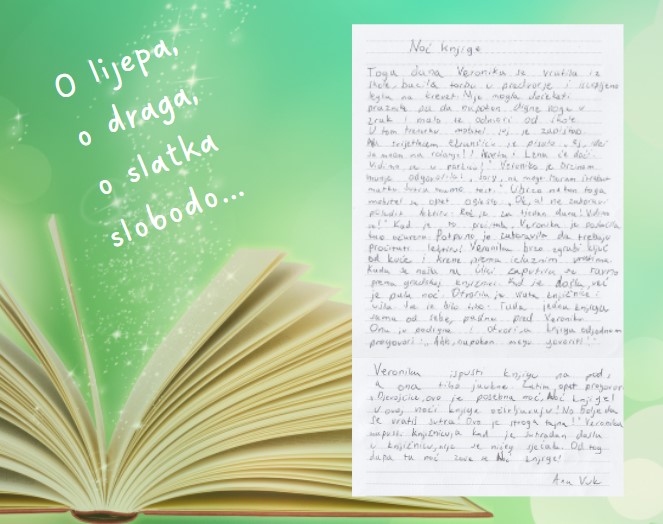 O lijepa,
o draga,
o slatka
slobodo...
Noć knjige
Toga dana Veronika se vratila iz
škole, bacila torbu u predvorje i iscrpljeno
legla na krevet. Nije mogla dočekati
praznike pa da napokon digne noge u
zrak i malo se odmori od škole.
U tom trenutku mobitel joj je zapištao.
Na svijetlećem ekrančiću je pisalo: „Ej, ideš
sa mnom na rolanje? I Lena će doći.
Vidimo se u parku!" Veronika je brzinom
munje odgovorila: „Sory, ne mogu. Moram
matku, imamo test." Ubrzo nakon toga
mobitel se opet oglasio. „Ok, al ne zaboravi
posudit lektiru. Rok je za tjedan dana! Vidimo
se!" Kad je to pročitala, Veronika je
Potpuno je zaboravila da trebaju
pročitati lektiru! Veronika brzo zgrabi ključ
od kuće i krene prema izlaznim vratima.
Kada se našla na ulici zaputila se ravno
prema gradskoj knjižnici. Kad je došla, već
je pala noć. Otvorila je vrata knjižnice i
ušla. Sve je bilo tiho. Tada jedna knjiga
sama od sebe, padne pred Veroniku.
Ona je podigne i otvori, a knjiga odjednom
progovori: „Ahh, napokon mogu govoriti!"
Veronika ispusti knjigu na pod,
a ona tiho jaukne. Zatim opet progovori:
„Djevojčice, ovo je posebna noć, Noć knjige!
U ovoj noći knjige oživljavaju! No bolje da
se vratiš sutra! Ovo je stroga tajna!" Veronika
napusti knjižnicu, a kad je sutradan došla
u knjižnicu, nije se ničeg sjećala. Od tog
dana ta noć zove se Noć knjige!
Ana Vuk